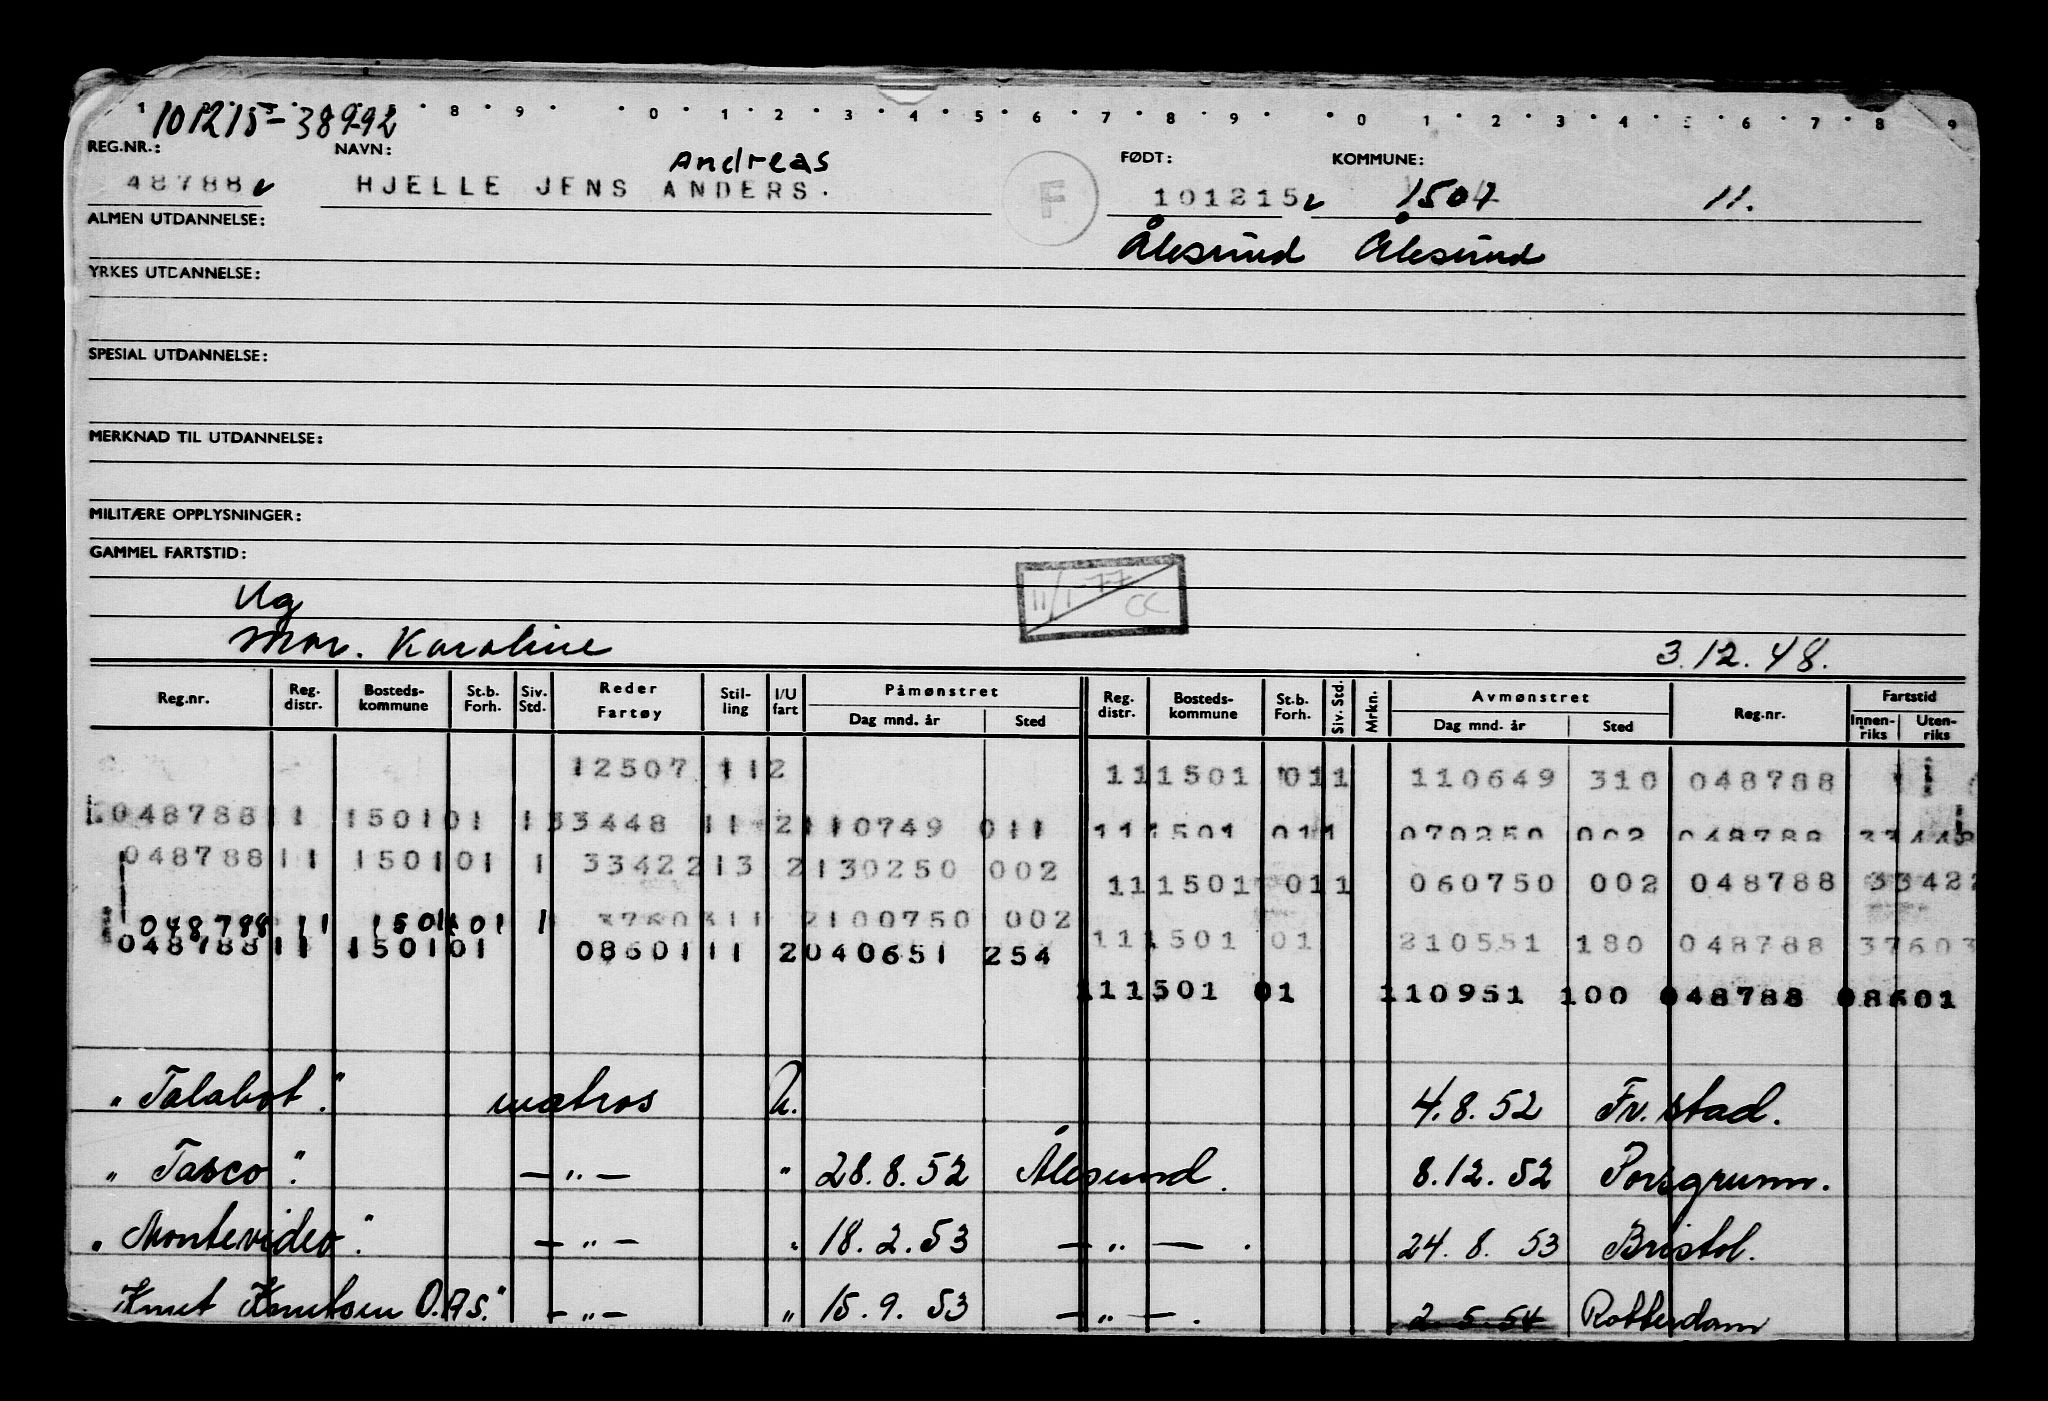 101215-38992
1 8 9 0 1 2 3 4 5 6 7 8 9 0 1 2 3 4 5 6 7 8 9
REG.NR.: NAVN: FØDT: KOMMUNE:
Andreas
48788 HJELLE JENS ANDERS. F 101215 1504 11.
ALMEN UTDANNELSE: Ålesund Ålesund
YRKES UTDANNELSE:
SPESIAL UTDANNELSE:
MERKNAD TIL UTDANNELSE:
MILITÆRE OPPLYSNINGER:
GAMMEL FARTSTID:
11/1-77
Ug
Mor. Karoline 3.12.48.
Reg.nr. Reg. distr. Bosteds-kommune St.b. Forh. Siv. Std. Reder Fartøy Stil-ling I/U fart Påmønstret Dag mnd. år Sted Reg. distr. Bosteds-kommune St.b. Forh. Siv. Std. Mrkn. Avmønstret Dag mnd. år Sted Reg.nr. Fartstid Innen-riks Uten-riks
12507 112 111501 011 110649 310 048788
048788 11 150101 133448 11 2110749 011 111501 011 070250 002 048788 33448
048788 11 150101 1 33422 13 2130250 002 111501 011 060750 002 048788 33422
048788 11 150101 1 37603 11 2100750 002 111501 01 210551 180 048788 37603
048788 11 150101 08601 11 2040651 254 111501 01 110951 100 048788 08601
„Talabot." matros U. 4.8.52 Fr.stad.
„Tasco." — " — " 28.8.52 Ålesund. 8.12.52 Porsgrunn.
„Montevideo". — " — " 18.2.53 — " — . 24.8.53 Bristol.
Knut Knutsen O.A.S." — " — " 15.9.53 — " — . 2.5.54 Rotterdam